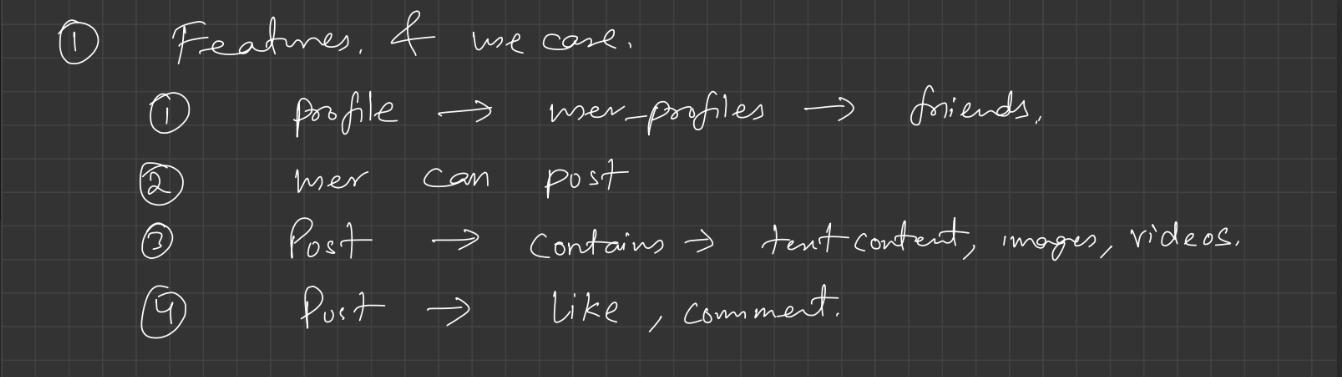 ① Features. & use case.
① profile → user_profiles → friends.
② user can post
③ Post → contains → text content, images, videos.
④ Post → like, comment.